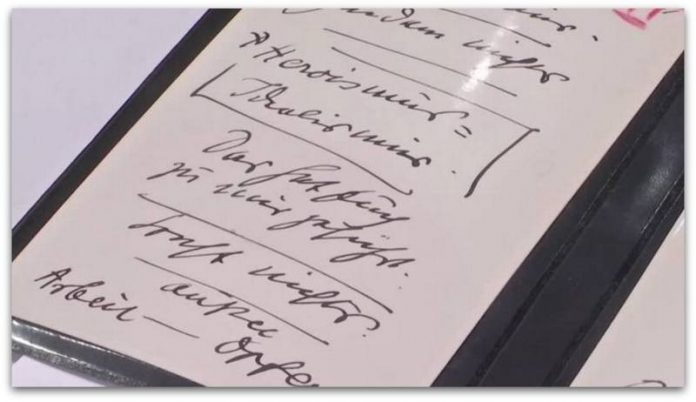 sondern nichts
Heroismus =
Idealismus.
Das hat Euch
zu mir geführt.
sonst nichts.
außer
Arbeit — Opfe